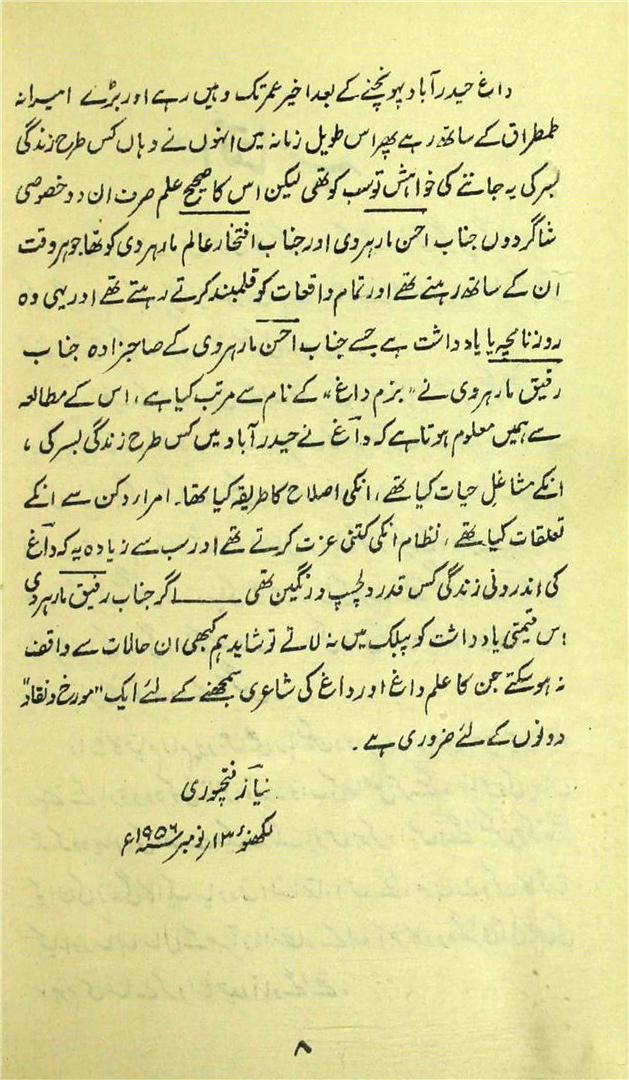 داغ حیدرآباد پہونچنے کے بعد اخیر عمر تک وہیں رہے اور بڑے امیرانہ
طمطراق کے ساتھ رہے پھر اس طویل زمانہ میں انہوں نے وہاں کس طرح زندگی
بسر کی یہ جاننے کی خواہش تو سب کو تھی لیکن اس کا صحیح علم صرف ان دو خصوصی
شاگردوں جناب احسن مارہروی اور جناب افتخار عالم مارہروی کو تھا جو ہر وقت
ان کے ساتھ رہتے تھے اور تمام واقعات کو قلمبند کرتے رہتے تھے اور یہی وہ
روزنامچہ یا یادداشت ہے جسے جناب احسن مارہروی کے صاحبزادہ جناب
رفیق مارہروی نے "بزم داغ" کے نام سے مرتب کیا ہے، اس کے مطالعہ
سے ہمیں معلوم ہوتا ہے کہ داغ نے حیدرآباد میں کس طرح زندگی بسر کی،
انکے مشاغل حیات کیا تھے، انکی اصلاح کا طریقہ کیا تھا۔ امراء دکن سے انکے
تعلقات کیا تھے، نظام انکی کتنی عزت کرتے تھے اور سب سے زیادہ یہ کہ داغ
کی اندرونی زندگی کس قدر دلچسپ و رنگین تھی ——— اگر جناب رفیق مارہروی
اس قیمتی یادداشت کو پبلک میں نہ لاتے تو شاید ہم کبھی ان حالات سے واقف
نہ ہو سکتے جن کا علم داغ اور داغ کی شاعری سمجھنے کے لئے ایک "مورخ و نقاد"
دونوں کے لئے ضروری ہے۔
نیاز فتحپوری
لکھنؤ ۱۳ نومبر ۱۹۵۶ء
۸